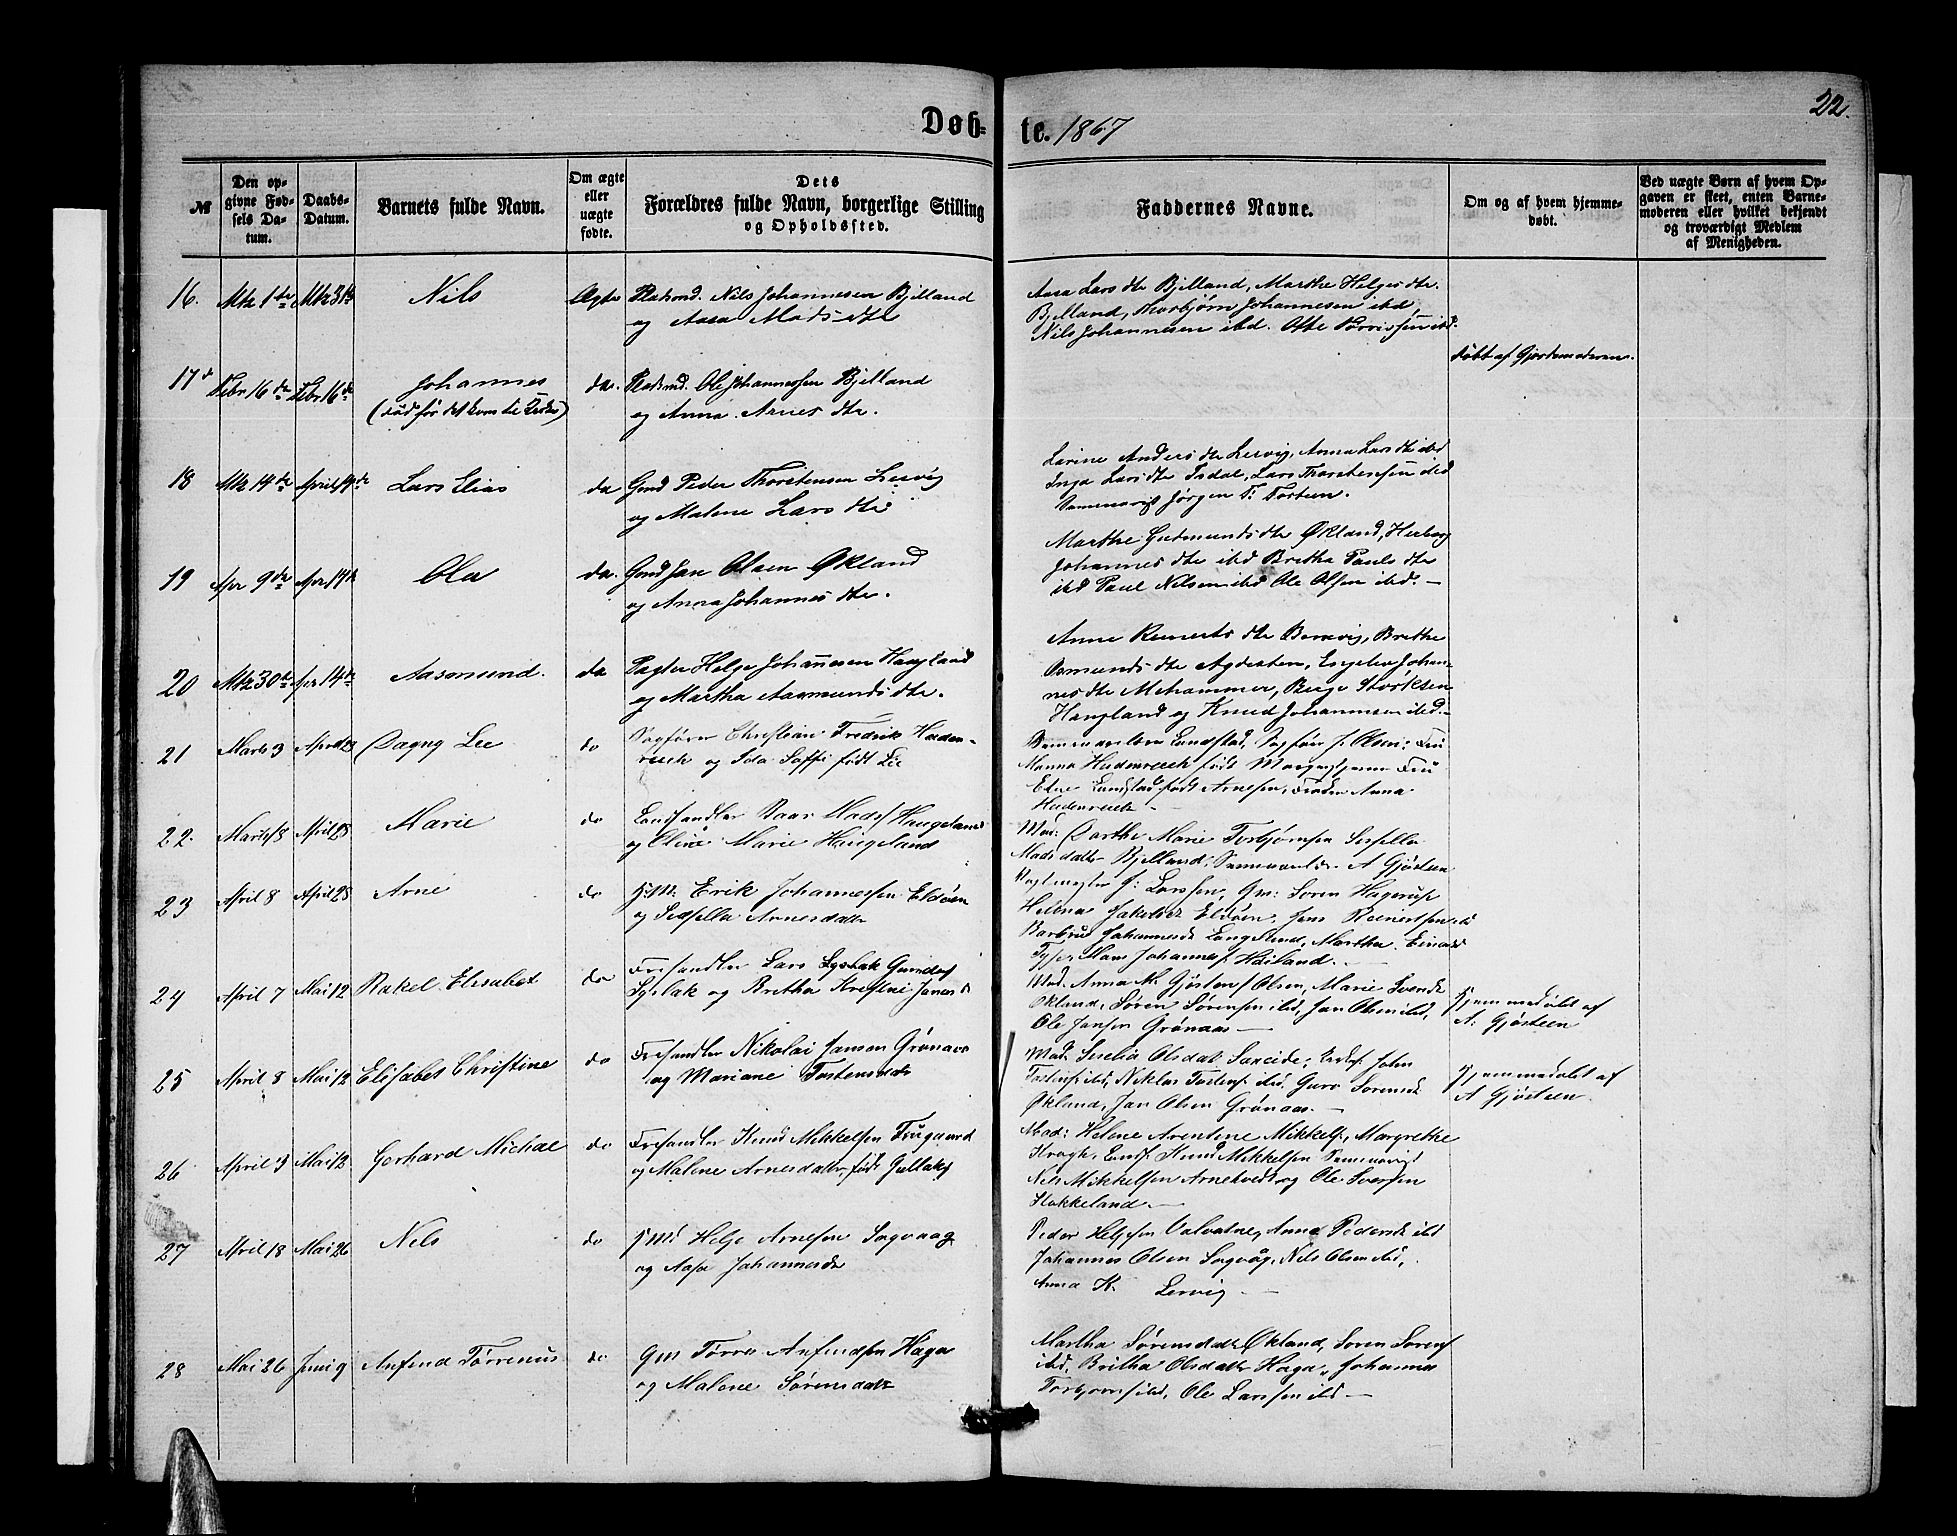 22.
Døb-te. 1867
№
Den op-
givne Fød-
sels Da-
tum.
Daabs-
Datum.
Barnets fulde Navn.
Om ægte
eller
uægte
fødte.
Dets
Forældres fulde Navn, borgerlige Stilling
og Opholdssted.
Faddernes Navne.
Om og af hvem hjemme-
døbt.
Ved uægte Børn af hvem Op-
gaven er skeet, enten Barne-
moderen eller hvilket bekjendt
og troværdigt Medlem
af Menigheden.
16. Mts 1ste Mts 31 Nils Ægte Pladsmd. Nils Johannesen Bjelland
og Aasa Mads dtr
Aasa Lars dtr Bjelland, Marthe Helges dtr.
Bjelland, Thorbjørn Johannesen ibd,
Nils Johannesen ibd. Otte Tørrissen ibd.
17 Febr 16de Febr 16de Johannes
(død før det kom til Kirke)
do. Pladsmd. Ole Johannessen Bjelland
og Anna Arnes dtr.
døbt af Gjordemoderen.
18 Mts 14de April 14de Lars Elias do Gmd Peder Thorstensen Lervig
og Malene Lars dtr
Larine Anders dtr Lervig, Anna Lars dtr ibd
Inga Lars dtr Isdal, Lars Thorstensen ibd
Jørgen T. Tosteen.
19 Apr 9de Apr 14de Ola do. Gmd Jan Olsen Økland
og Anna Johannes dtr.
Marthe Gudmunds dtr Økland, Herborg
Johannes dtr ibd Bretha Pauls dtr
ibd Paul Nilsen ibd Ole Olsen ibd. —
20 Mts 30te Apr 14de Aasmund. do Pagter Helge Johannesen Haugland
og Martha Aasmunds dtr.
Anne Reinerts dtr Børevig, Brethe
Osmunds dtr Agdesten, Engelen Johan-
nes dtr Mehammer, Børge Størksen
Haugland og Knud Johannesen ibd.
21 Marts 3 April Dagny Lie do Sagfører Christian Fredrik Heden-
reich og Ida Soffi født Lie
Lundstad, Sagfør J. Olsen: Fru
Manna Hedenreich født Morgenstjerne Fru
Eline Lundstad født Arnesen, Frøken Anna
Hedenreich —
22. Marts 18 April 28 Marie do Landhandler Baar Mads. Haugeland
og Eline Marie Haugeland
Mad: Dorthe Marie Torbjørnsen Sissella
Madsdatter Bjelland, A Gjøsteen
23 April 8 April 28 Arne do Gm: Erik Johannessen Eldøen
og Sissella Arnesdatter
J: Larssen, Gm: Søren Hagerup
Helena Jakobsdt Eldøen, Jens Reinertsen ibd
Barbrue Johannesdt Langeland, Martha Einarsdt
Hans Johannes. Høiland. —
24 April 7 Mai 12 Rakel Elisabet do Frihandler Lars Lyslak
Lyslak og Bretha Kristni Jansdt
Mad. Anna M. Gjøsten Olsen, Marie Svendsdt
Økland, Søren Sørensen ibd, Jan Olsen ibd,
Ole Jansen Grønaas —
Hjemmedøbt af
A: Gjøsteen
25 April 8 Mai 12 Elisabet Christine do Frihandler Nikolai Jansen Grønaas
og Mariane Tostensdatter
Mad. Serelia Olsdat John
Tostens. ibd, Niklas Tostens. ibd. Guro Sørensdt
Økland, Jan Olsen Grønaas. —
Hjemmedøbt af
A Gjøsteen.
26 April 3 Mai 12 Gerhard Michal do Frihandler Knud Mikkelsen Frugaard
og Malene Arnesdatter født Gullaks
Mad: Helene Arentine Mikkels. Margrethe
Krogh, Knud Mikkelsen
Nils Mikkelsen Arnetvedt og Ole Sversen
Stokkeland. —
27 April 18 Mai 26 Nels do Gmd Helje Arnesen Sagvaag
og Aase Johannesdt
Peder Helgesen Valvatne, Anna Pedersdt ibd
Johannes Olsen Sagvåg, Nils Olsen ibd,
Anna K. Lervig —
28 Mai 26 Juni 9 Anfind Tørrenius do Gm Tørre Anfindsen Haga
og Malene Sørensdatter
Martha Sørensdatter Økland, Søren Sørens.
ibd, Britha Olsdatter Haga, Johannes
Torbjørns. ibd, Ole Larssen ibd —